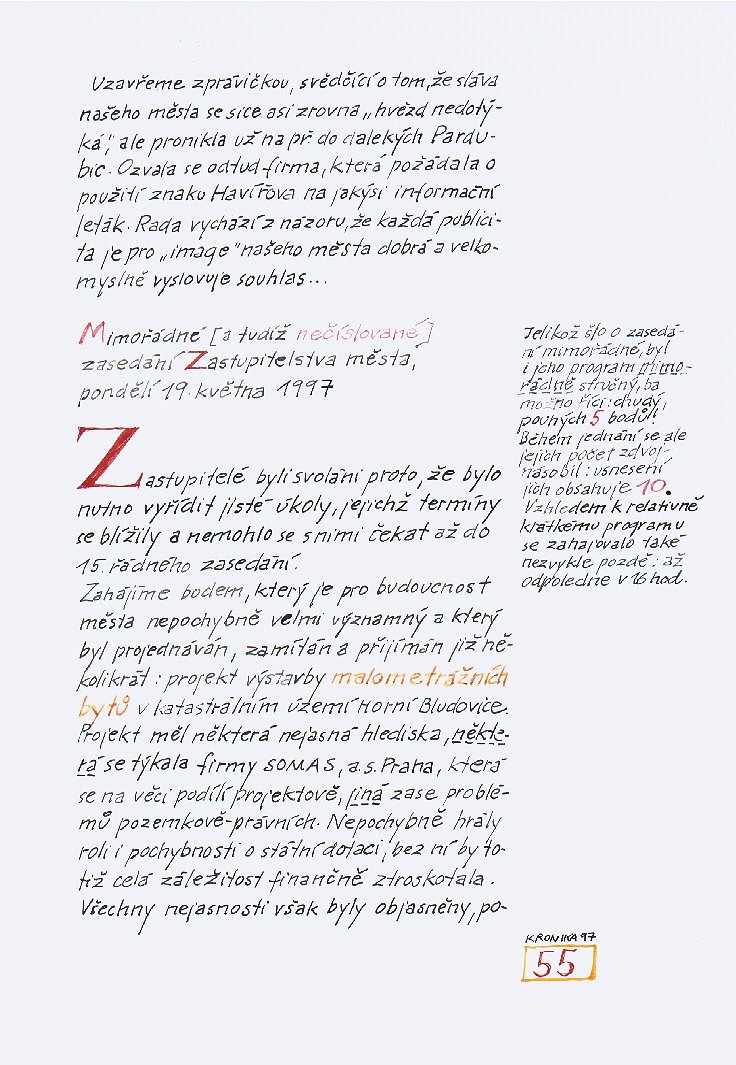 Uzavřeme zprávičkou, svědčící o tom, že sláva
našeho města se sice asi zrovna „hvězd nedotý-
ká", ale pronikla už na př. do dalekých Pardu-
bic. Ozvala se odtud firma, která požádala o
použití znaku Havířova na jakýsi informační
leták. Rada vychází z názoru, že každá publici-
ta je pro „image" našeho města dobrá a velko-
myslně vyslovuje souhlas...
Mimořádné [a tudíž nečíslované]
zasedání Zastupitelstva města,
pondělí 19. května 1997
Zastupitelé byli svoláni proto, že bylo
nutno vyřídit jisté úkoly, jejichž termíny
se blížily a nemohlo se s nimi čekat až do
15. řádného zasedání.
Zahájíme bodem, který je pro budoucnost
města nepochybně velmi významný a který
byl projednáván, zamítán a přijímán již ně-
kolikrát: projekt výstavby malometrážních
bytů v katastrálním území Horní Bludovice.
Projekt měl některá nejasná hlediska, někte-
rá se týkala firmy SOMAS, a.s. Praha, která
se na věci podílí projektově, jiná zase problé-
mů pozemkově-právních. Nepochybně hrály
roli i pochybnosti o státní dotaci, bez ní by to-
tiž celá záležitost finančně ztroskotala.
Všechny nejasnosti však byly objasněny, po-
Jelikož šlo o zasedá-
ní mimořádné, byl
i jeho program mimo-
řádně stručný, ba
možno říci: chudý,
pouhých 5 bodů!
Během jednání se ale
jejich počet zdvoj-
násobil: usnesení
jich obsahuje 10.
Vzhledem k relativně
krátkému programu
se zahajovalo také
nezvykle pozdě: až
odpoledne v 16 hod.
KRONIKA 97
55